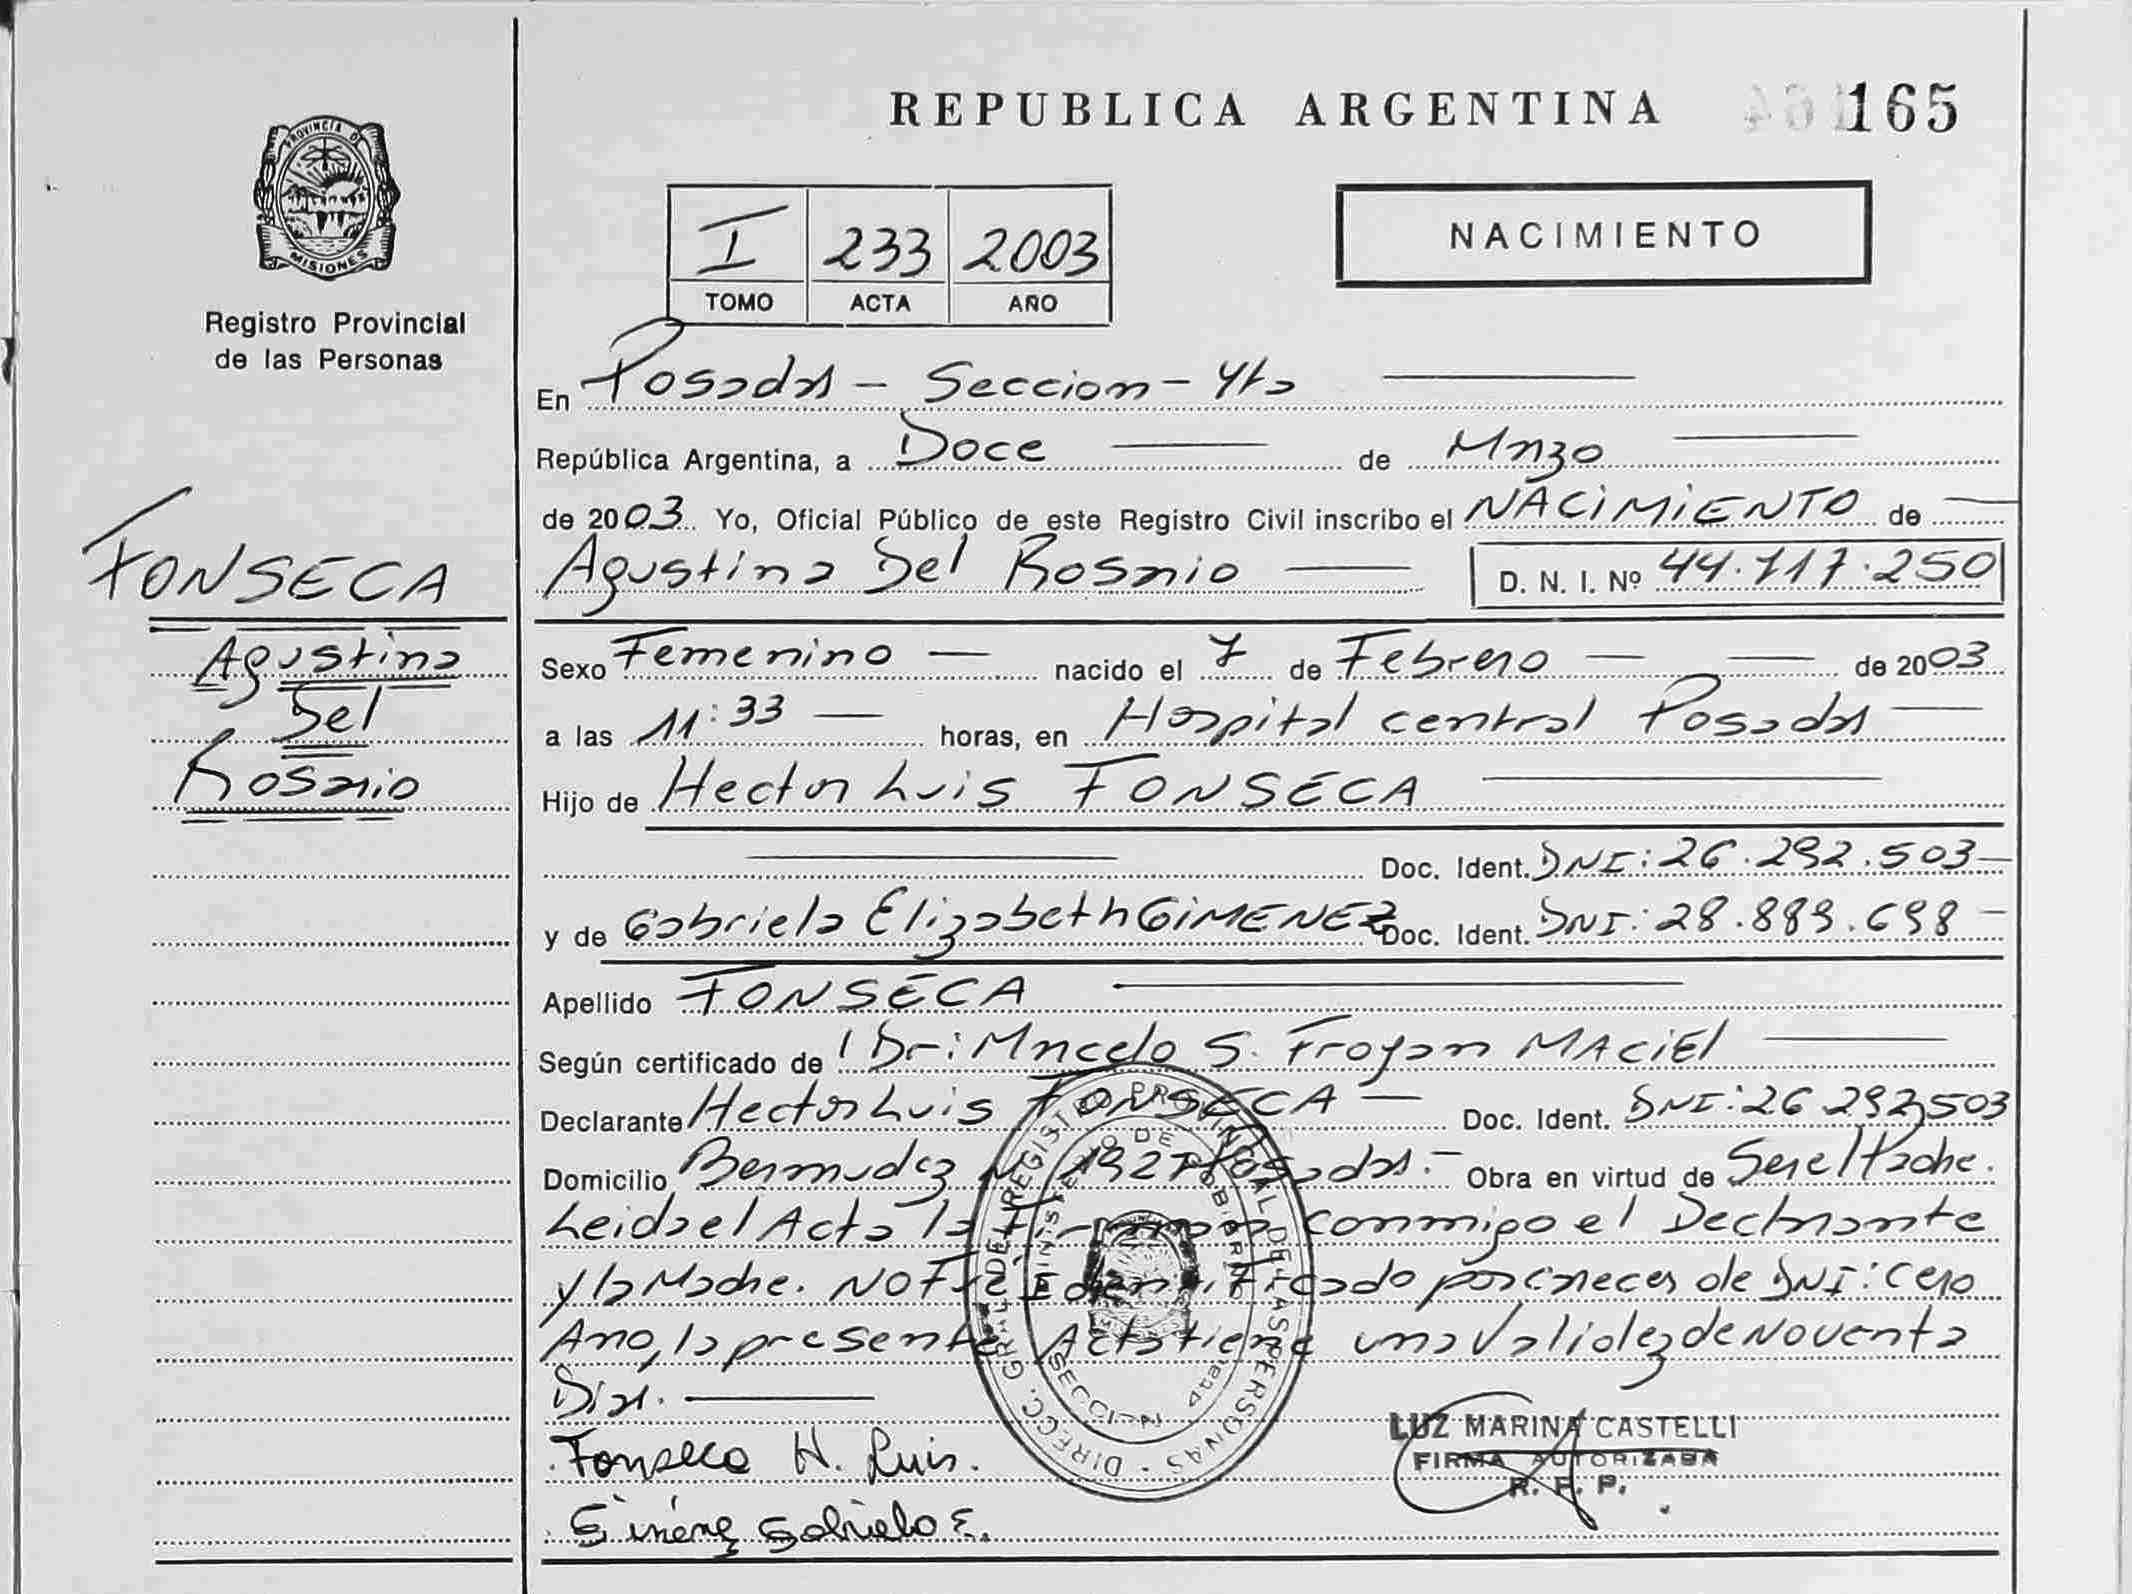 REPUBLICA ARGENTINA 165
PROVINCIA DE
MISIONES
Registro Provincial
de las Personas
I 233 2003
TOMO ACTA AÑO
NACIMIENTO
En Posadas - Seccion - 4ta
República Argentina, a Doce de Marzo
de 2003 Yo, Oficial Público de este Registro Civil inscribo el NACIMIENTO de
Agustina Del Rosario D. N. I. Nº 44.117.250
FONSECA
Agustina
Del
Rosario
Sexo Femenino nacido el 7 de Febrero de 2003
a las 11:33 horas, en Hospital central Posadas
Hijo de Hector Luis FONSECA
Doc. Ident. DNI: 26.292.503
y de Gabriela Elizabeth GIMENEZ Doc. Ident. DNI: 28.889.698
Apellido FONSECA
Según certificado de Dr: Marcelo S. Froyan MACIEL
Declarante Hector Luis FONSECA Doc. Ident. DNI: 26 292,503
Domicilio Bermudez N 1927 Posadas. Obra en virtud de Ser el Padre.
Leida el Acta la Firman conmigo el Declarante
y la Madre. NO Fue Identificado por carecer de DNI: Cero
Ano, la presente Acta tiene una Validez de Noventa
Dias.
Fonseca H. Luis.
Gimenez Gabriela E.
LUZ MARINA CASTELLI
FIRMA AUTORIZADA
R. P. P.
DIRECC. GRAL DEL REGISTRO PROVINCIAL DE LAS PERSONAS
MINISTERIO DE GOBIERNO
SECCION 4ta